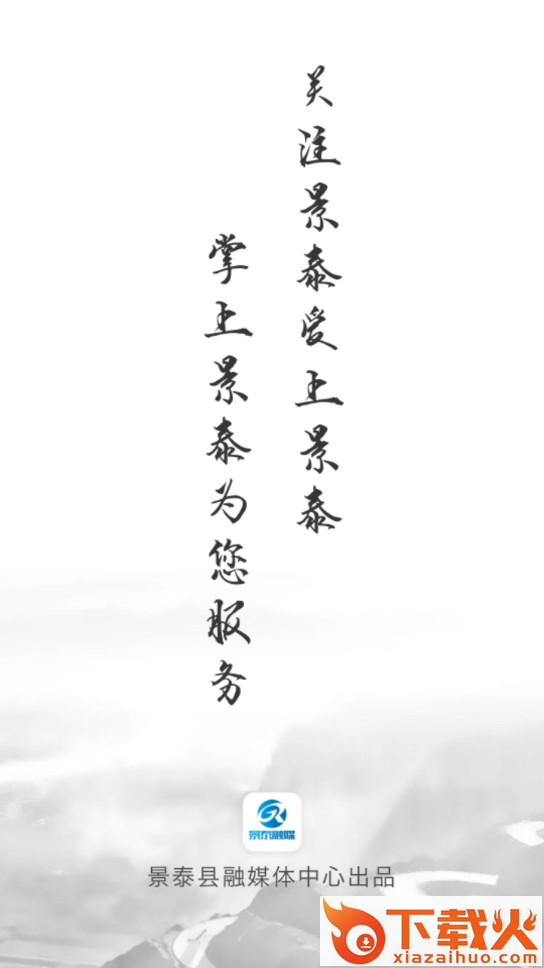 关注景泰爱上景泰
掌上景泰为您服务
景泰融媒
景泰县融媒体中心出品
下载火
xiazaihuo.com